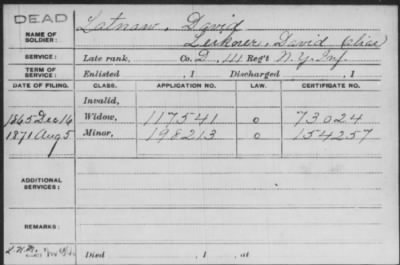 DEAD
NAME OF SOLDIER: Latnaw, David
Leshover, David Alias
SERVICE: Late rank, Co. D, 111 Reg't N.Y. Inf.
TERM OF SERVICE: Enlisted , 1 Discharged , 1
DATE OF FILING. CLASS. APPLICATION NO. LAW. CERTIFICATE NO.
Invalid,
1865 Dec 16 Widow, 117541 o 73024
1871 Aug 5 Minor, 198213 o 154257
ADDITIONAL SERVICES:
REMARKS:
Died , 1 , at